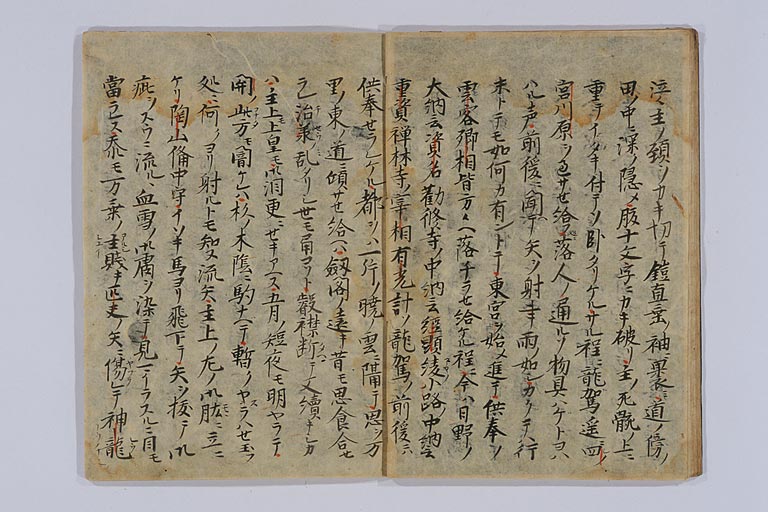 泣々主ノ頚ヲカキ切テ鎧直垂ノ袖ニ裹ミ道ノ傍ノ
田ノ中ニ深ク隠メ腹十文字ニカキ破リ主ノ死骸ノ上ニ
重テイタキ付テソ臥タリケルサル程ニ龍駕遥ニ四ノ
宮川原ヲ過サせ給フ落人ノ通ルソ物具ハケトヨハ
ハル声前後ニ聞テ矢ヲ射事雨ノ如シカクテハ行
末トテモ如何カ有ントテ東宮ヲ始メ進テ供奉ノ
雲客卿相皆方々ヘ落チラせ給ケル程ニ今ハ日野ノ
大納言資名勧修寺ノ中納言経顕綾小路中納言
重資禅林寺ノ宰相有光計ソ龍駕ノ前後ニハ
供奉せラレケル都ヲハ一片ノ暁ノ雲ニ隔テ思ヲ万
里ノ東ノ道ニ傾サせ給ヘハ剱閣ノ遠キ昔モ思食合せ
ラレ治承ノ乱タリシ世モ角コソト叡襟断テ又続キシカ
ハ主上上皇モ御泪更ニせキアヘス五月ノ短夜モ明ヤラテ
関ノ此方モ闇ケレハ杉ノ木陰ニ駒ナヘテ暫ノヤスラハせ玉フ
処ニ何クヨリ射ルトモ知ヌ流矢主上ノ左ノ御肱ニ立ニ
ケリ陶山備中守イソキ馬ヨリ飛下テ矢ヲ抜テ御
疵ヲスウニ流ルヽ血雪ノ御膚ヲ染テ見マイラスルニ目モ
當ラレス忝モ万乗ノ主賎キ匹夫ノ矢ニ傷レテ神龍